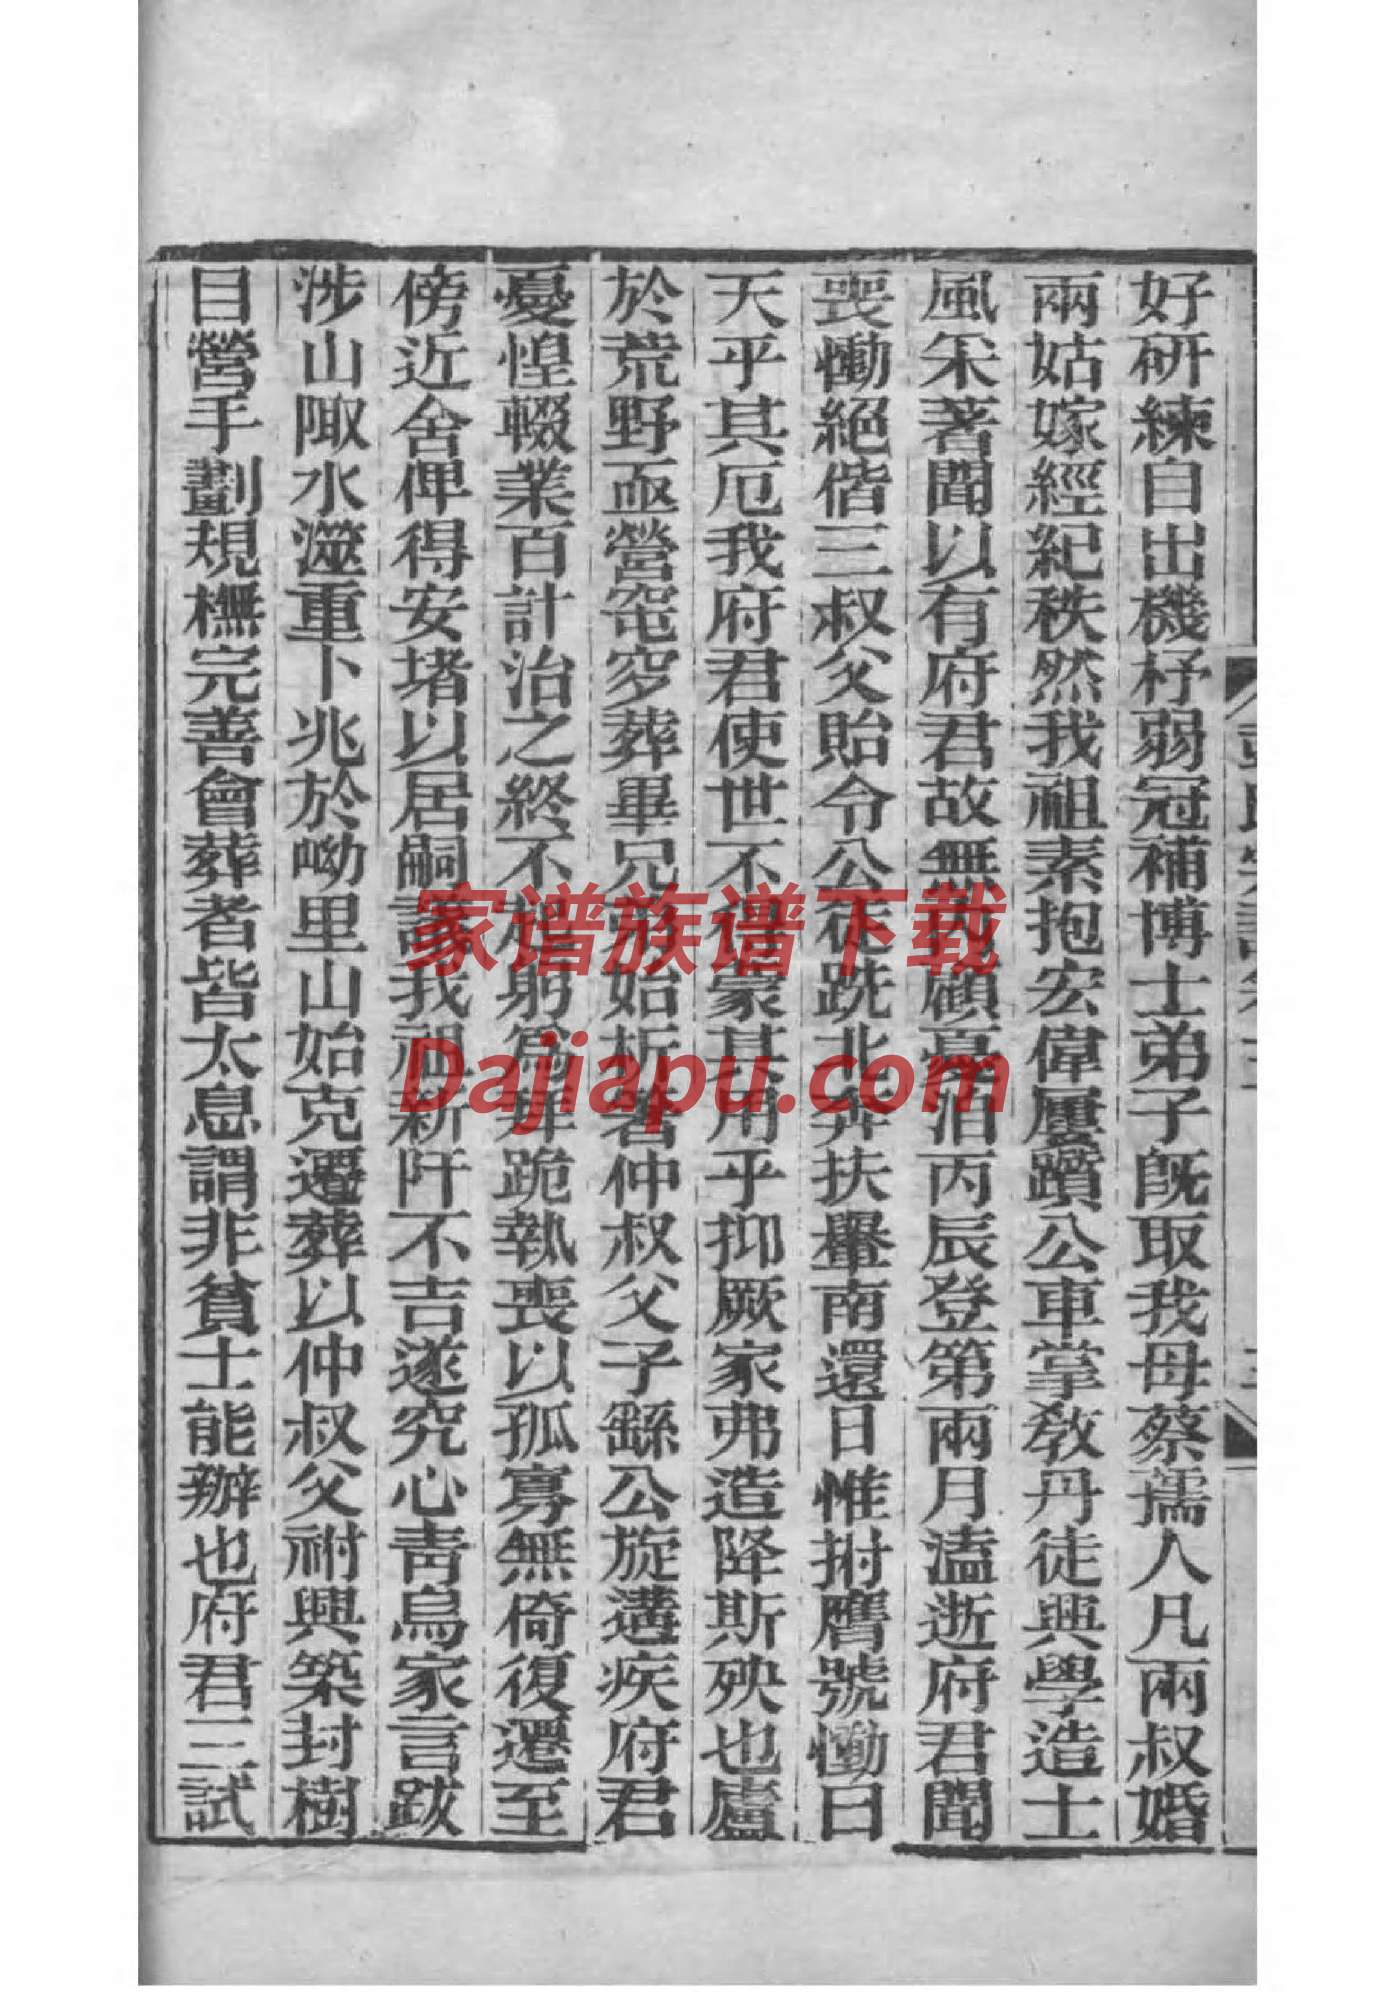 好研練自出機杼弱冠補博士弟子旣取我母蔡孺人凡兩叔婚
兩姑嫁經紀秩然我祖素抱宏偉屢躓公車掌敎丹徒興學造士
風采著聞以有府君故無內顧憂泊丙辰登第兩月溘逝府君聞
喪慟絕偕三叔父貽令公徒跣北奔扶轝南還日惟拊膺號慟曰
天乎其厄我府君使世不得蒙其用乎抑厥家弗造降斯殃也廬
於荒野亟營窀穸葬畢兄弟始析著仲叔父子繇公旋遘疾府君
憂惶輟業百計治之終不起躬爲拜跪執喪以孤寡無倚復遷至
傍近舍俾得安堵以居嗣我祖新阡不吉遂究心靑烏家言跋
涉山陬水澨重卜兆於㘭里山始克遷葬以仲叔父祔興築封樹
目營手劃規橅完善會葬者皆太息謂非貧士能辦也府君三試
家谱族谱下载
Dajiapu.com